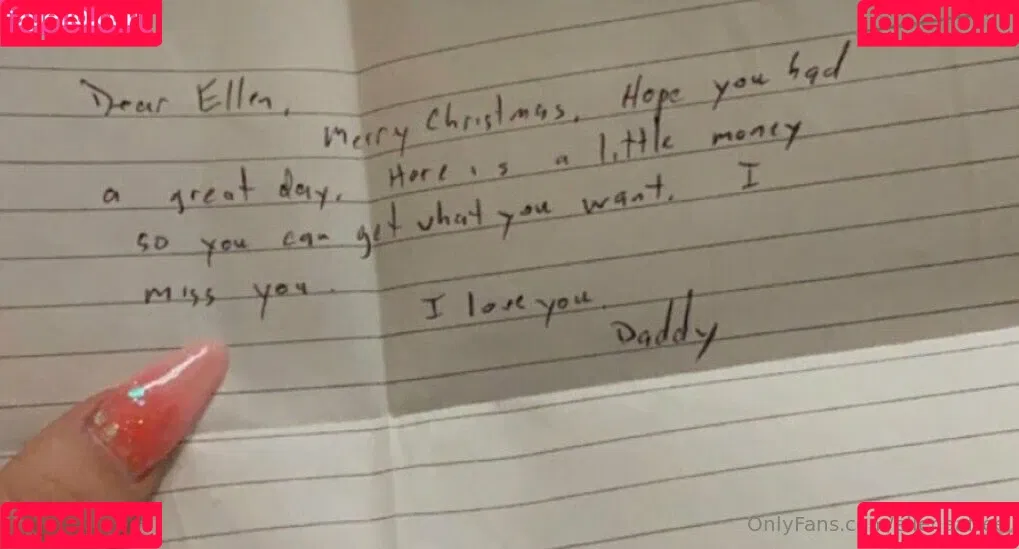 fapello.ru
fapello.ru
Dear Ellen,
Merry Christmas. Hope you had
a great day. Here is a little money
so you can get what you want. I
miss you.
I love you.
Daddy
fapello.ru
OnlyFans.c
fapello.ru